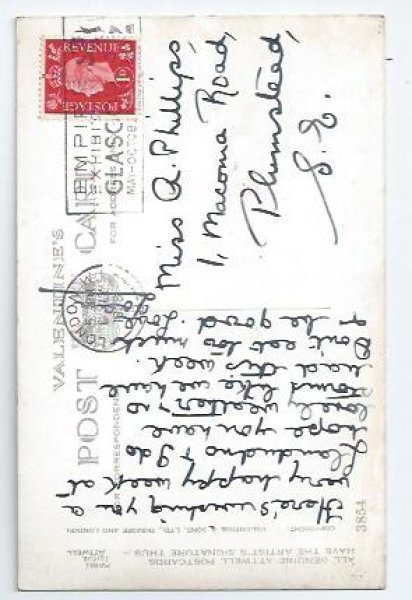 VALENTINE'S
POST CARD
FOR CORRESPONDENCE
FOR ADDRESS
REVENUE
1D
POSTAGE
EMPIRE
EXHIBI
GLASG
MAY-OCTOBE
LONDON
Miss A. Phillips,
1, Macoma Road,
Plumstead,
S.E.
Here's wishing you a
very happy week at
Llandudno & I do
hope you have
lovely weather to
like we have
had this week.
Don't eat too much
& be good. Love
ALL GENUINE ATTWELL POSTCARDS
HAVE THE ARTIST'S SIGNATURE THUS –
MABEL
LUCIE
ATTWELL
COPYRIGHT. VALENTINE & SONS, LTD., DUNDEE AND LONDON
3854